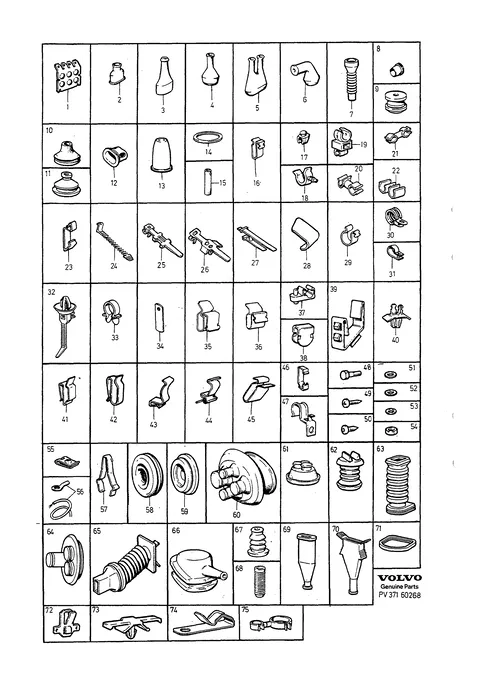 8
1 2 3 4 5 6 7
9
10
12 13 14 16 17 19 21
11
15 18 20 22
23 24 25 26 27 28 29 30
31
32
33 34 35 36 37 39 40
38
41 42 43 44 45 46 48 51
47 49 52
50 53
54
55
56 57 58 59 60 61 62 63
64 65 66 67 69 70 71
68
VOLVO
Genuine Parts
PV 371 60268
72 73 74 75